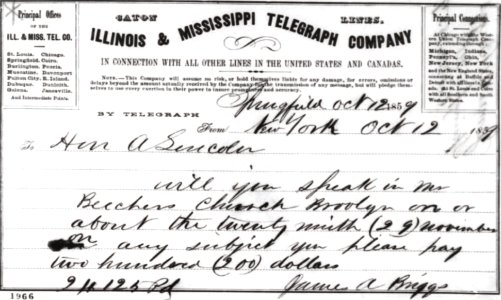 Principal Offices
OF THE
ILL. & MISS. TEL. CO.
St. Louis. Chicago.
Springfield. Cairo.
Burlington. Peoria.
Muscatine. Davenport
Fulton City. R. Island.
Dubuque. Dunleith.
Quincy. Janesville.
And Intermediate Points.
CATON LINES.
ILLINOIS & MISSISSIPPI TELEGRAPH COMPANY
IN CONNECTION WITH ALL OTHER LINES IN THE UNITED STATES AND CANADAS.
NOTE.—This Company will assume no risk, or hold themselves liable for any damage, for errors, omissions or
delays beyond the amount actually received by the Company for the transmission of any message, but will pledge them-
selves to use every exertion in their power to insure promptness and accuracy.
Principal Connections.
At Chicago with the Western Union Telegraph Company, extending through
Michigan, Indiana,
Pennsyl'a, Ohio,
New Jersey, New York
and the New England States,
BY TELEGRAPH
Springfield Oct 12 1859
From New York Oct 12 1859
To Hon A Lincoln
will you speak in Mr
Beechers Church Broolyn on or
about the twenty ninth (29) November
on any subject you please pay
two hundred (200) dollars
James A. Briggs
1966